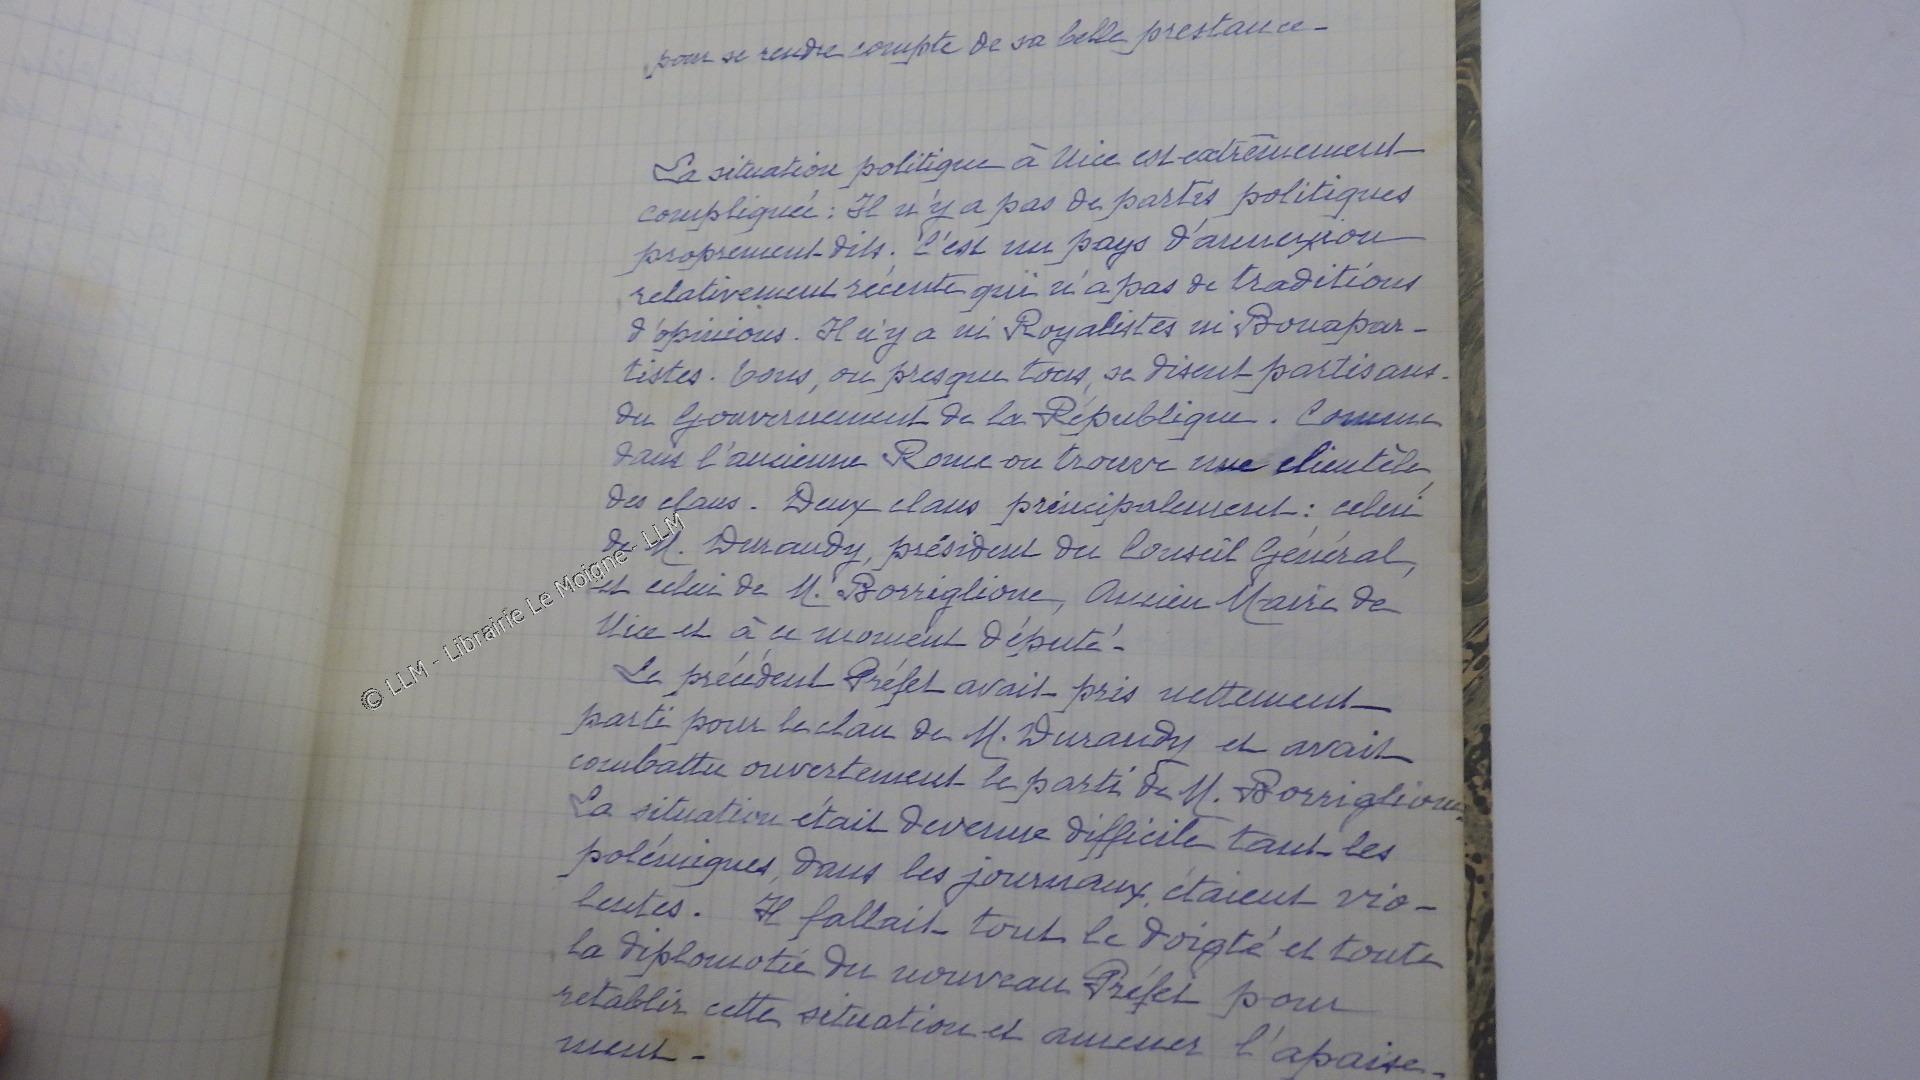 pour se rendre compte de sa belle prestance -
La situation politique à Nice est extrêmement
compliquée : Il n'y a pas de partis politiques
proprement dits. C'est un pays d'annexion
relativement récente qui n'a pas de traditions
d'opinions. Il n'y a ni Royalistes ni Bonapar-
tistes. Tous, ou presque tous, se disent partisans
du Gouvernement de la République. Comme
dans l'ancienne Rome on trouve une clientèle,
des clans. Deux clans principalement : celui
de M. Durandy, président du Conseil Général,
et celui de M. Borriglione, Ancien Maire de
Nice et à ce moment député -
Le précédent Préfet avait pris nettement
parti pour le clan de M. Durandy et avait
combattu ouvertement le parti de M. Borriglione.
La situation était devenue difficile tant les
polémiques, dans les journaux, étaient vio-
lentes. Il fallait tout le doigté et toute
la diplomatie du nouveau Préfet pour
rétablir cette situation et amener l'apaise-
ment -
© LLM - Librairie Le Moigne - LLM